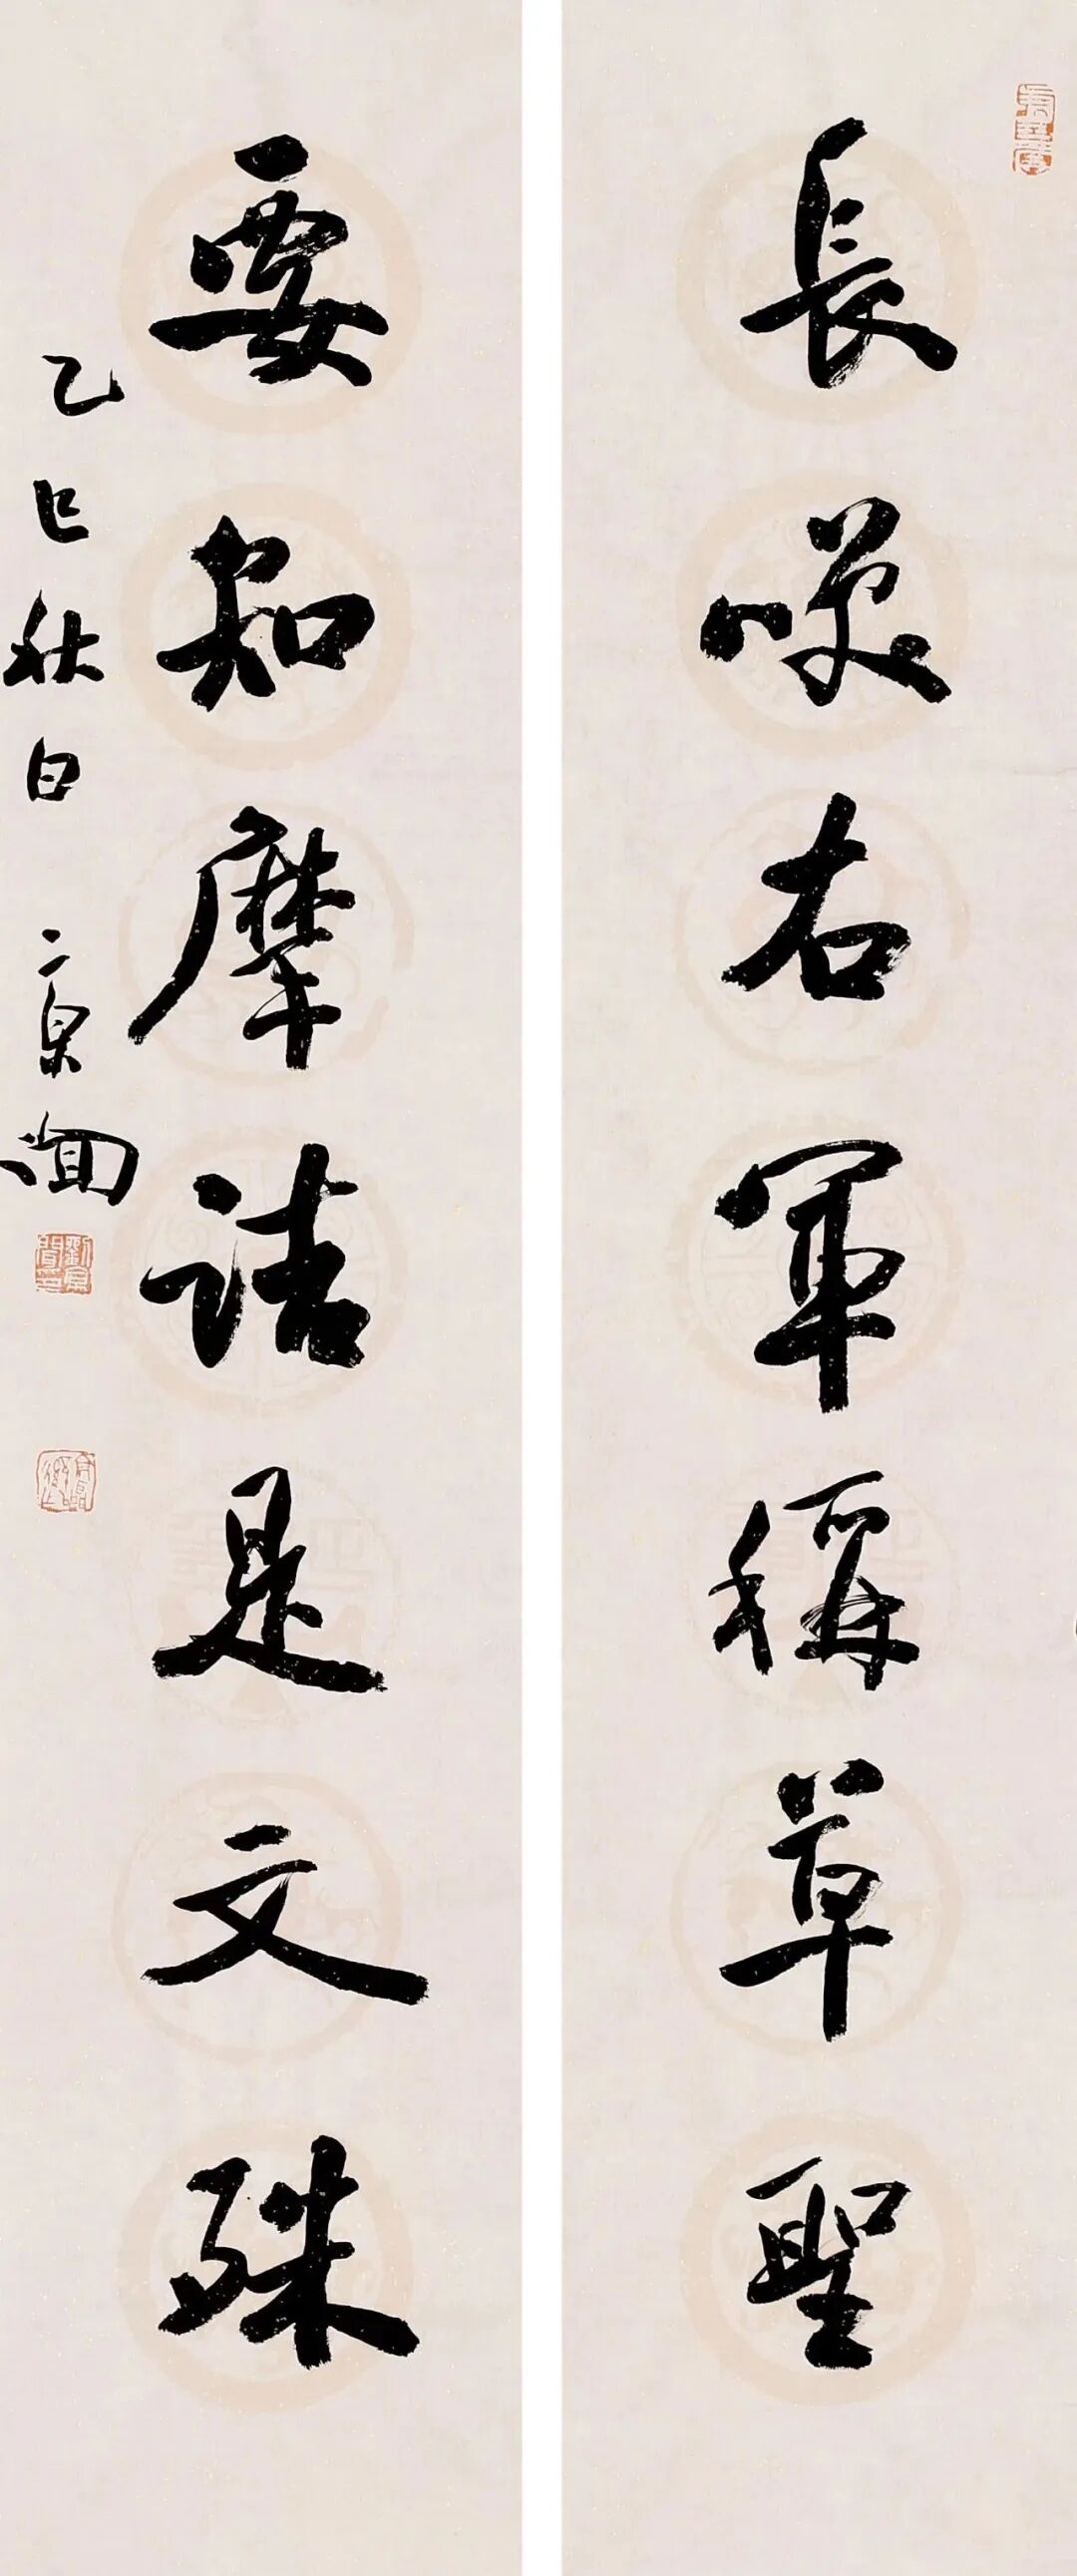 長嘆右軍稱草聖
要知摩詰是文殊
乙巳秋日 京聞